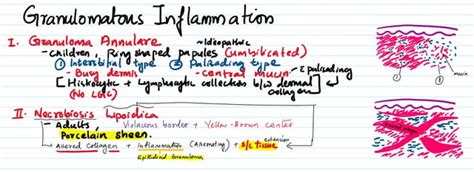 Granulomatous Inflammation
I. Granuloma Annulare ~Idiopathic
- Children, Ring shaped papules (umbilicated)
① Interstitial type ② Palisading type
- Busy dermis - central mucin & palisading
[Histiocytic + Lymphocytic collection b/w dermal collagen]
(No LGC)
mucin
① ②
II. Necrobiosis Lipoidica
- Adults, Violaceous border + Yellow-Brown center
Porcelain sheen.
Altered collagen + Inflammation (Alternating) + s/c tissue extension
Epithelioid Granuloma